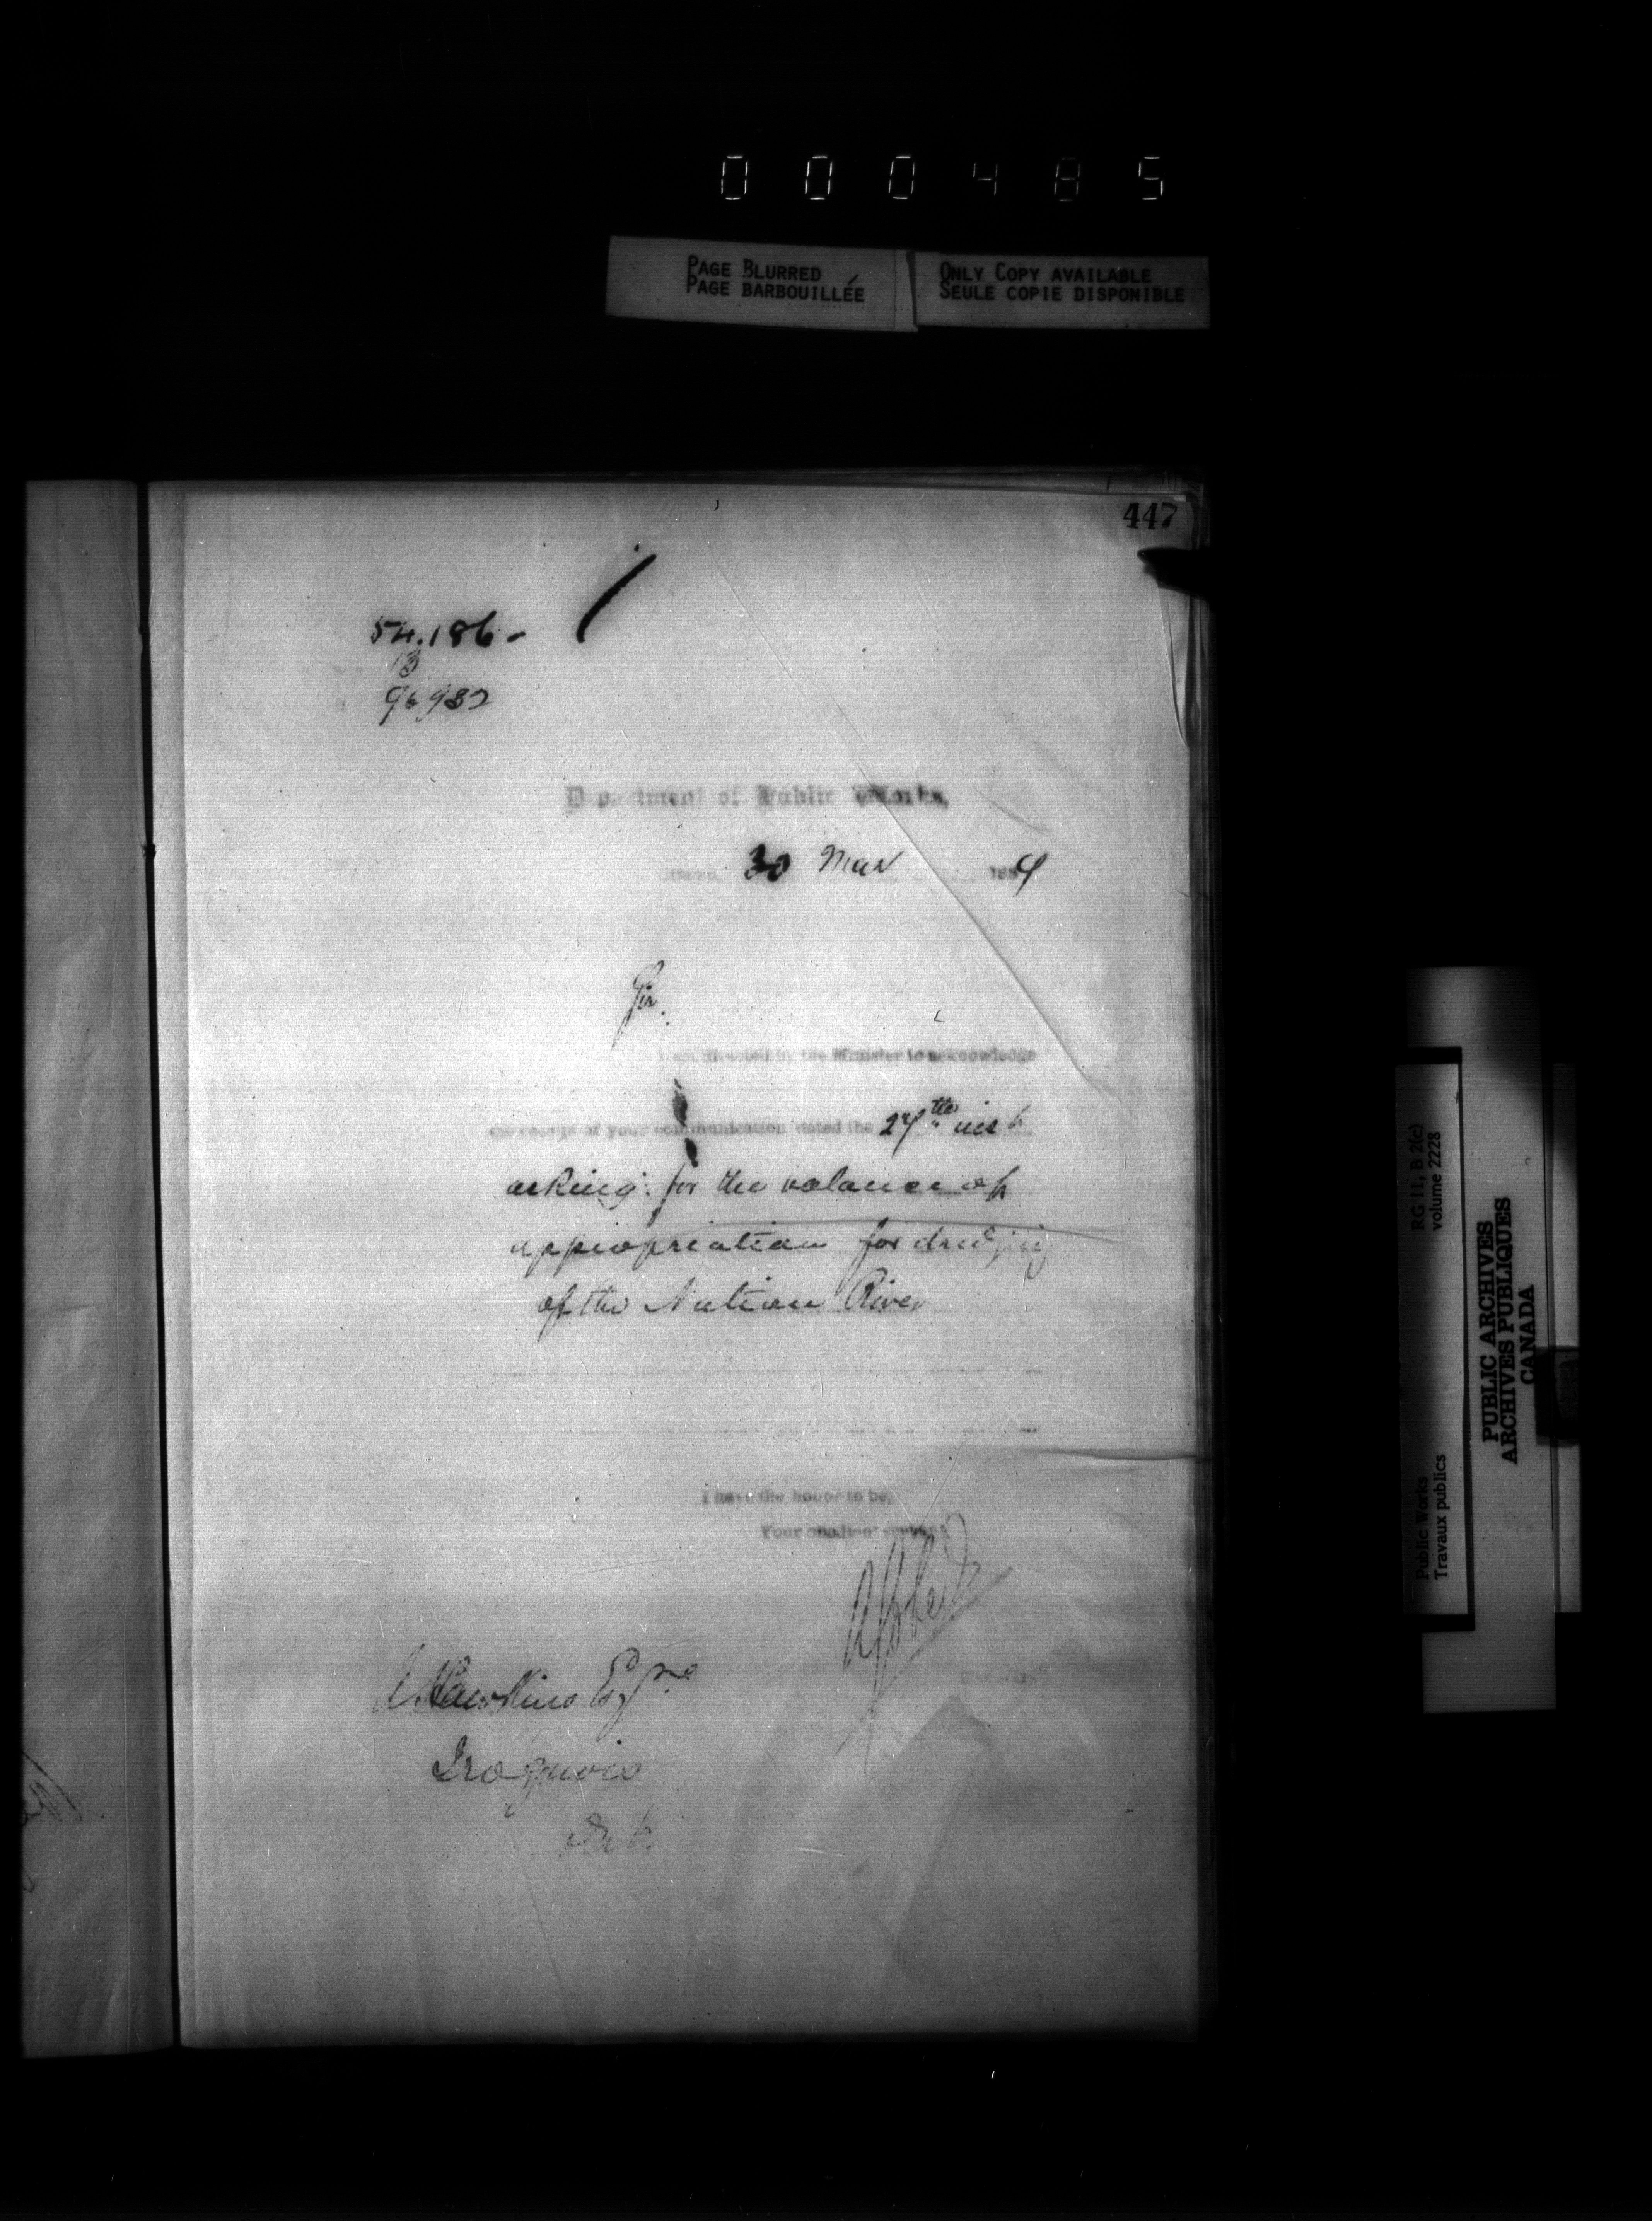 000485
PAGE BLURRED
PAGE BARBOUILLÉE
ONLY COPY AVAILABLE
SEULE COPIE DISPONIBLE
447
54.186-
Department of Public Works,
30 Mar 1889
Sir.
I am directed by the Minister to acknowledge
the receipt of your communication dated the 27th inst
asking for the balance of
appropriation for dredging
of the Nation River
I have the honor to be,
Your obedient servant
Hawkins Esqre
Iroquois
Ont.
RG 11, B 2(c)
volume 2228
Public Works
Travaux publics
PUBLIC ARCHIVES
ARCHIVES PUBLIQUES
CANADA